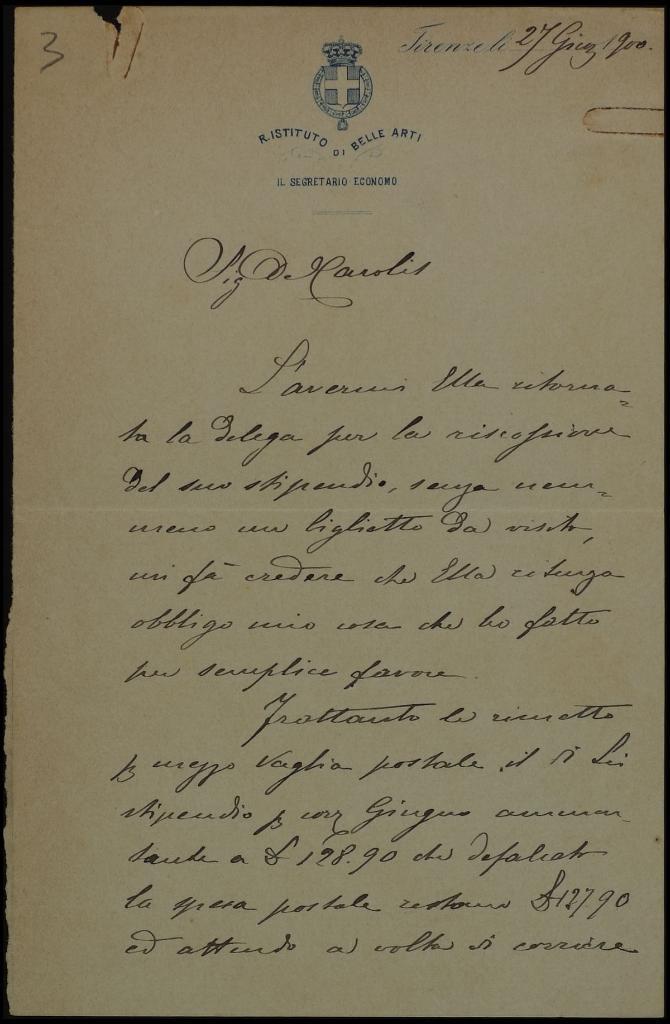 3
Firenze li 27 Giug 1900.
R. ISTITUTO DI BELLE ARTI
IL SEGRETARIO ECONOMO
Sig De Carolis
L'avermi Ella ritorna=
ta la delega per la riscossione
del suo stipendio, senza nem=
meno un biglietto da visita,
mi fà credere che Ella ritenga
obbligo mio cosa che ho fatto
per semplice favore.
Frattanto le rimetto
p mezzo Vaglia postale il di Lei
stipendio p corr Giugno ammon-
tante a £ 128.90 che defalcato
la spesa postale restano £ 127,90
ed attendo a volta di corriere